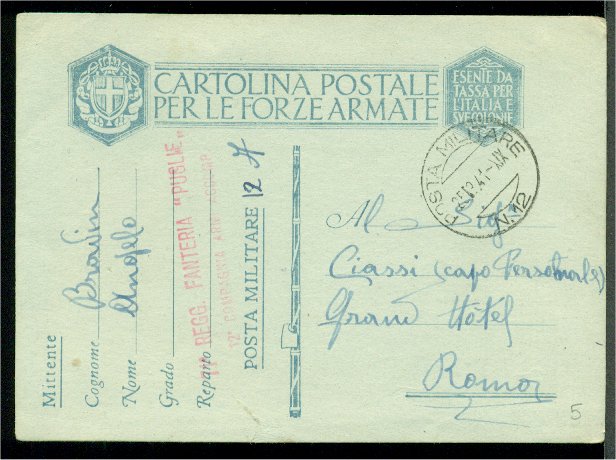 CARTOLINA POSTALE
PER LE FORZE ARMATE
ESENTE DA
TASSA PER
L'ITALIA E
SUE COLONIE
POSTA MILITARE
N.12
.41-XX
Al Sig.
Ciassi (capo Personale)
Grand Hôtel
Roma
5
Mittente
Cognome
Nome Angelo
Grado
Reparto
REGG. FANTERIA "PUGLIE"
12ª COMPAGNIA
POSTA MILITARE 12 A